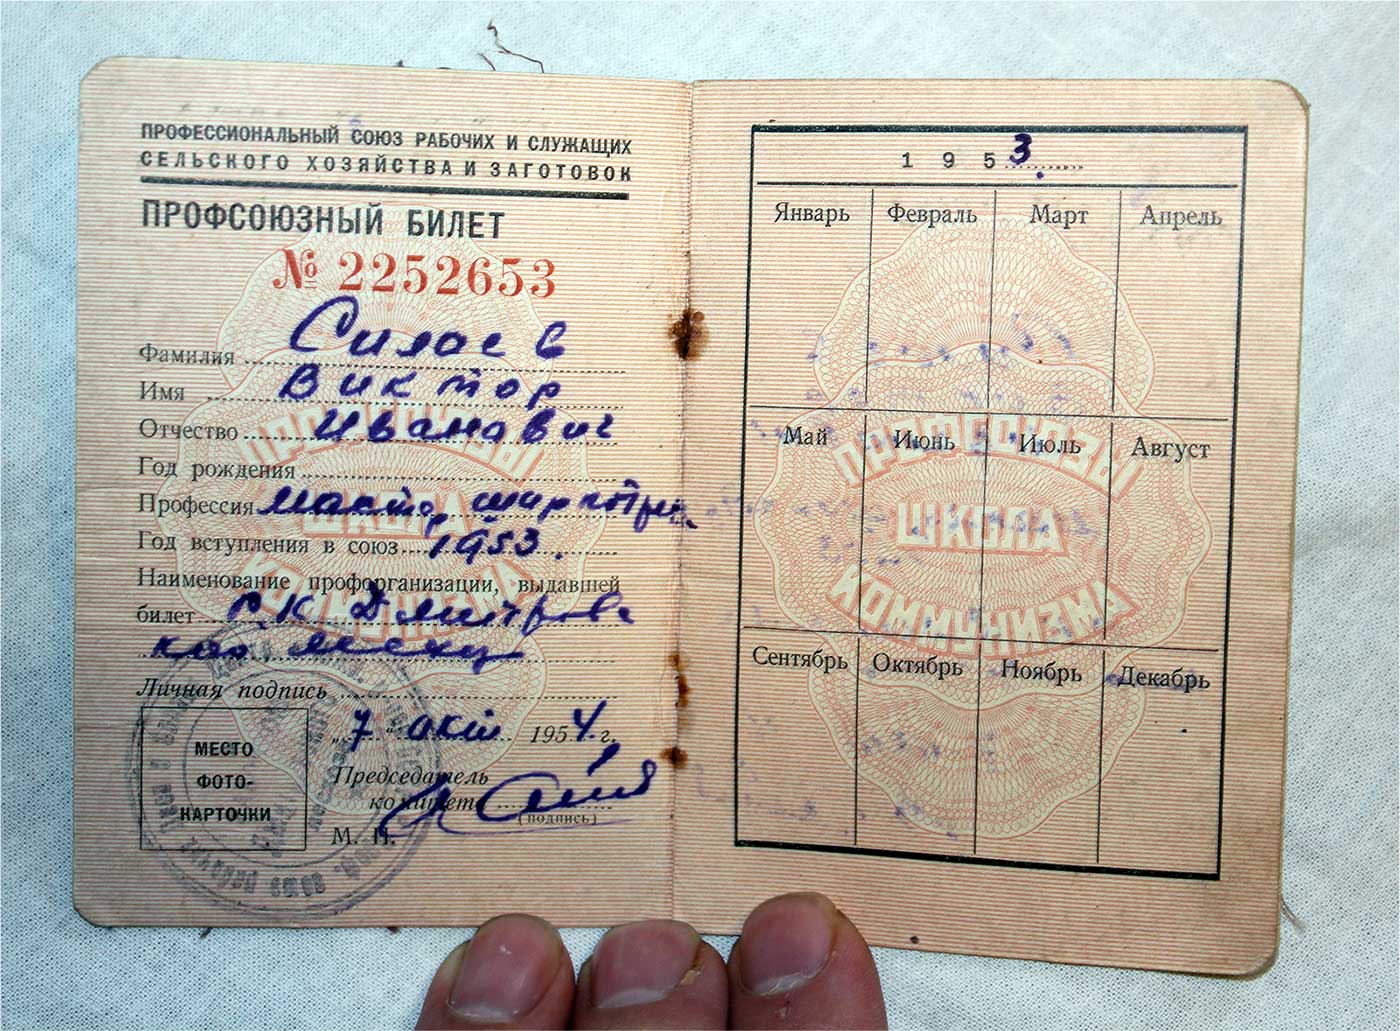 ПРОФЕССИОНАЛЬНЫЙ СОЮЗ РАБОЧИХ И СЛУЖАЩИХ
СЕЛЬСКОГО ХОЗЯЙСТВА И ЗАГОТОВОК
ПРОФСОЮЗНЫЙ БИЛЕТ
№ 2252653
Фамилия Силаев
Имя Виктор
Отчество Иванович
Год рождения
Профессия
Год вступления в союз 1953.
Наименование профорганизации, выдавшей
билет
Личная подпись
„7" окт 1954 г.
Председатель
комитета
(подпись)
М. П.
МЕСТО
ФОТО-
КАРТОЧКИ
ПРОФСОЮЗЫ
ШКОЛА
КОММУНИЗМА
1953
Январь Февраль Март Апрель
Май Июнь Июль Август
Сентябрь Октябрь Ноябрь Декабрь
ПРОФСОЮЗЫ
ШКОЛА
КОММУНИЗМА